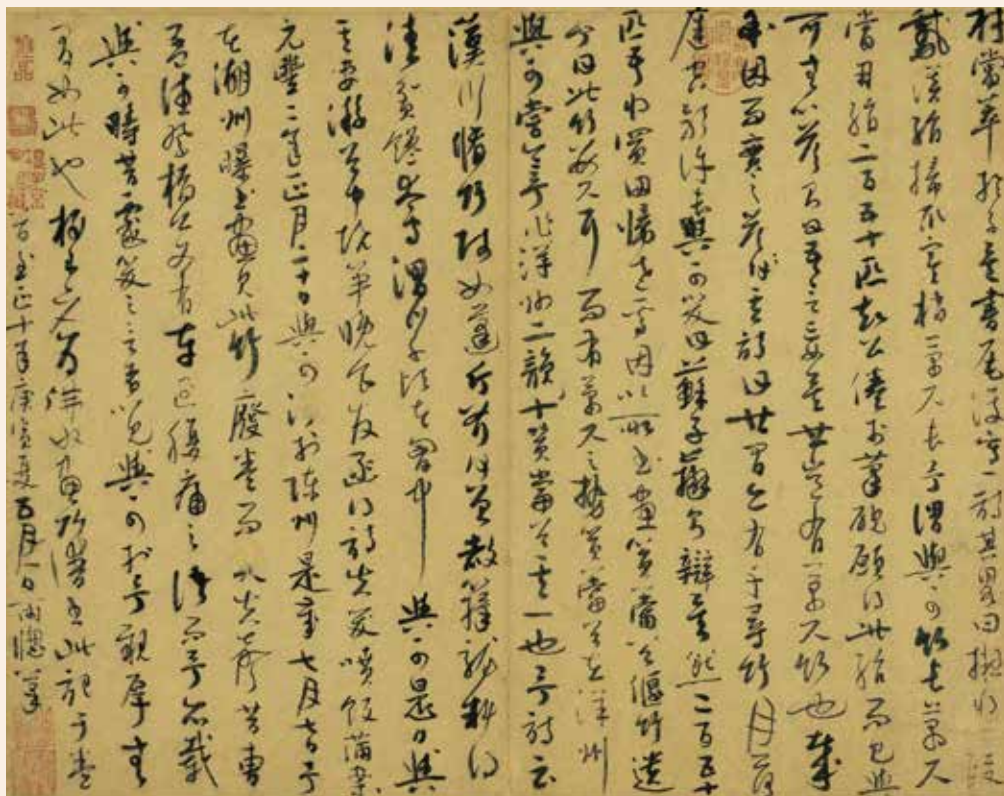 材當萃於子矣書尾復寫一詩其畧曰擬將一段
鵝溪絹掃取寒梢萬尺長予謂與可竹長萬尺
當用絹二百五十匹知公倦於筆硯願得此絹而已與
可無以答則曰吾言妄矣世豈有萬尺竹也哉
余因而實之答其詩曰世間亦有千尋竹月落
庭空影許長與可笑曰蘇子辯則辯矣然二百五十
匹吾將買田歸老焉因以所畫篔簹谷偃竹遺
予曰此竹數尺耳而有萬尺之勢篔簹谷在洋州
與可嘗令予作洋州三韻十篔簹谷其一也予詩云
漢川脩竹賤如蓬斤斧何曾赦籜龍料得
清貧饞太守渭川千畝在胸中與可是日與
其妻游谷中燒筍晚食發函得詩失笑噴飯滿案
元豐二年正月二十日與可沒於陳州是歲七月七日予
在湖州曝書畫見此竹廢卷而哭失聲昔曹
孟德祭橋公文有車過腹痛之語而予亦載
與可疇昔戲笑之言者以見與可於予親厚無
間如此也
至正十年庚寅夏五月一日